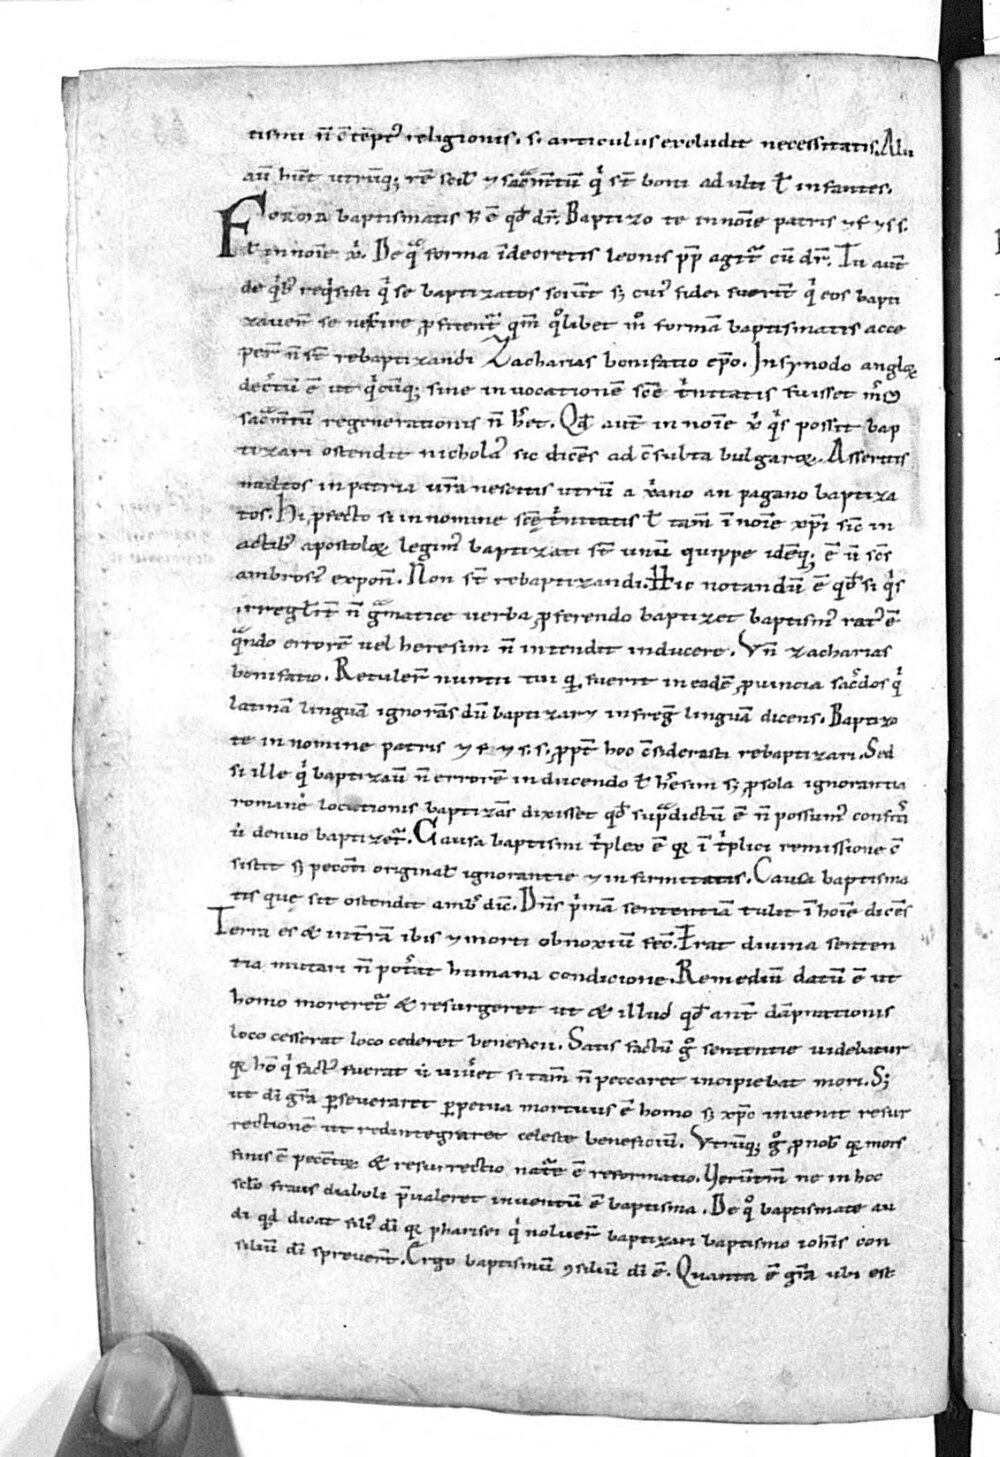 tismi n̄ c̄tēpt᾽ religionis. s; articulus excludit necessitatis. Alii
aū hn̄t utrūq; rē scil᾽ ⁊ sac̄mtū qͥ st̄ boni adulti ł infantes.
Forma baptismatis h̄ ē qđ dr̄. Baptizo te in noīe patris ⁊ f ⁊ s s.
ł in noīe x̄. De qͣ forma ī decretis leonis pp̄ agit᾽ cū dr̄. Tu aut̄
de qͥb᾽ req̇sisti qͥ se baptizatos sciūt s; cui᾽ fidei fuerīt qͥ eos bapti
zauer̄ se nescire ꝓfitent᾽ qm̄ qͦlibet mͦ formā baptismatis acce
per̄ n̄ st̄ rebaptizandi Zacharias bonifatio ep̄o. In synodo angloꝝ
decͬtū ē ut qͥcūq; sine inuocationē scē tͥnitatis fuisset m̄sͦ
sacͣmtū regenerationis n̄ h̄et. Qđ aut̄ in noīe x̄ qͥs possit bap
tizari ostendit nichola᾽ sic dicēs ad c̄sulta bulgaroꝝ. Asseritis
multos in patria ur̄a nescitis utrū a xͥano an pagano baptiza
tos. Hi ꝓfecto si in nomine scē tͥnitatis ł tam̄ ī noīe xp̄i sic̄ in
actib᾽ apostoloꝝ legim᾽ baptizati st̄ unū quippe idēq; ē ū scs̄
ambrosi᾽ expon̄. Non st̄ rebaptizandi. Hic notandū ē qđ si qͥs
irregł̄it n̄ gͣmatice uerba ꝓferendo baptizet baptism᾽ rat᾽ ē
qͣndo errorē uel heresim n̄ intendit inducere. Vn̄ zacharias
bonifatio. Retuler̄ nuntii tui q fuerit in eadē ꝓuincia sac̄dos qͥ
latinā linguā ignorās dū baptizar⁊ infreg̃ linguā dicens. Baptizo
te in nomine patris ⁊ f ⁊ s.s. ꝓpt̄ hoc c̄siderasti rebaptizari. Sed
si ille qͥ baptizaū n̄ errorē inducendo ł h̄esim s; ꝓ sola ignorantia
romanē locutionis baptizās dixisset qđ supͣdictū ē n̄ possum᾽
ū denuo baptizet᾽. Causa baptismi tͥplex ē ꝗ ī tͥplici remissione c̄
sistit s; peccͣti original᾽ ignorantie ⁊ infirmitatis. Causa baptisma
tis quę sit ostendit amb᾽ dic̄. Dn̄s pͥmā sententiā tulit ī hoīe dicēs
Terra es & in tr̄am ibis ⁊ morti obnoxiū fec̄. Erat diuina senten
tia mutari n̄ pot᾽at humana condicione. Remediū datū ē ut
homo moreret᾽ & resurgeret ut & illud qđ ant̄ dāpnationis
loco cesserat loco cederet beneficii. Satis factū gͦ sententie uidebatur
ꝗ hō qͥ fact᾽ fuerat ū uiu᾽et si tam̄ n̄ peccaret incipiebat mori. S;
ut dī gr̄a ꝑseueraret ꝑpetua mortuus ē homo s; xp̄c inuenit resur
rectionē ut redintegraret celeste beneficiū. Vtrūq; gͦ ꝓ nob᾽ ꝗ mors
finis ē peccͣtoꝝ & resurrectio natͬe ē reformatio. Uerūtm̄ ne in hoc
sc̄lo fraus diaboli pͣualeret inuentū ē baptisma. De qͦ baptismate au
di qd dicat fili᾽ dī ꝗ pharisei qͥ noluer̄ baptizari baptismo ioh̄is con
siliū dī spreuer̄t. Ergo baptismū ꝯsiliū dī ē. Quanta ē gr̄a ubi est